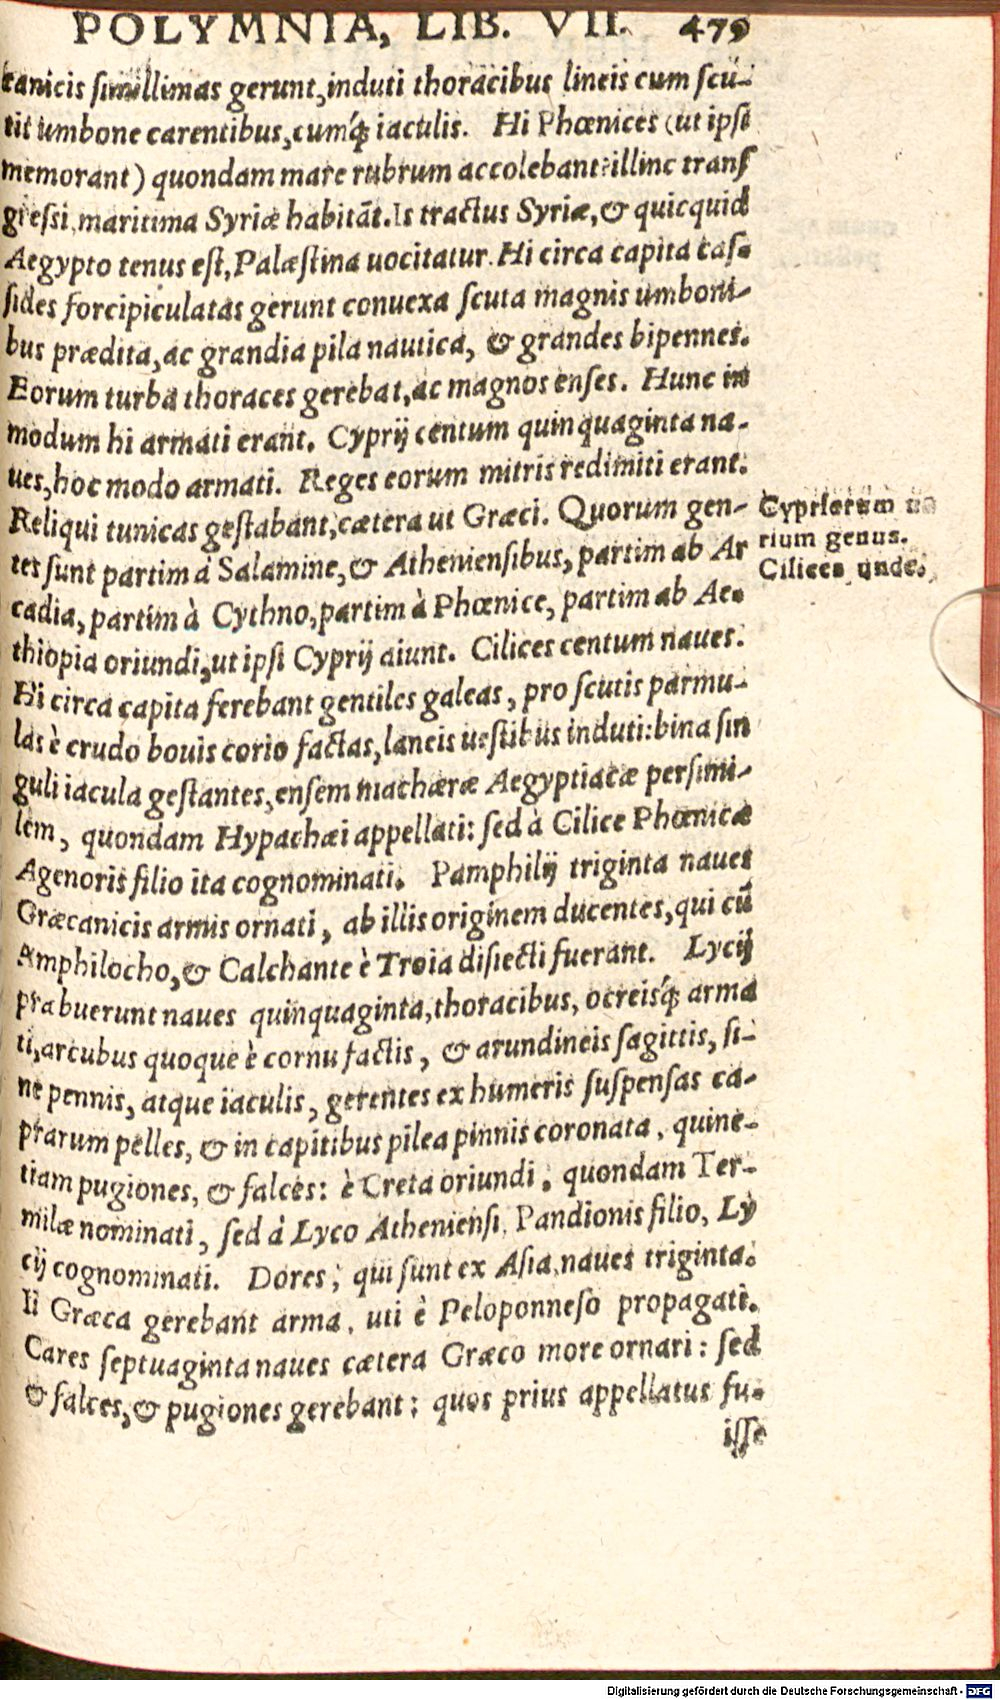 POLYMNIA, LIB. VII. 479
canicis simillimas gerunt, induti thoracibus lineis cum scu-
tis umbone carentibus, cumq́; iaculis. Hi Phœnices (ut ipsi
memorant) quondam mare rubrum accolebant: illinc trans
gressi, maritima Syriæ habitāt. Is tractus Syriæ, & quicquid
Aegypto tenus est, Palæstina uocitatur. Hi circa capita cas-
sides forcipiculatas gerunt conuexa scuta magnis umboni-
bus prædita, ac grandia pila nautica, & grandes bipennes.
Eorum turba thoraces gerebat, ac magnos enses. Hunc in
modum hi armati erant. Cyprij centum quinquaginta na-
ues, hoc modo armati. Reges eorum mitris redimiti erant:
Reliqui tunicas gestabant, cætera ut Græci. Quorum gen-
tes sunt partim à Salamine, & Atheniensibus, partim ab Ar
cadia, partim à Cythno, partim à Phœnice, partim ab Ae-
thiopia oriundi, ut ipsi Cyprij aiunt. Cilices centum naues:
Hi circa capita ferebant gentiles galeas, pro scutis parmu-
las è crudo bouis corio factas, laneis uestibus induti: bina sin
guli iacula gestantes, ensem machæræ Aegyptiacæ persimi-
lem, quondam Hypachæi appellati: sed à Cilice Phœnice
Agenoris filio ita cognominati. Pamphilij triginta naues
Græcanicis armis ornati, ab illis originem ducentes, qui cū
Amphilocho, & Calchante è Troia disiecti fuerant. Lycij
præbuerunt naues quinquaginta, thoracibus, ocreisq́; arma
ti, arcubus quoque è cornu factis, & arundineis sagittis, si-
ne pennis, atque iaculis, gerentes ex humeris suspensas ca-
prarum pelles, & in capitibus pilea pinnis coronata, quine-
tiam pugiones, & falces: è Creta oriundi, quondam Ter-
milæ nominati, sed à Lyco Atheniensi, Pandionis filio, Ly
cij cognominati. Dores, qui sunt ex Asia, naues triginta.
Ii Græca gerebant arma, uti è Peloponneso propagati.
Cares septuaginta naues cætera Græco more ornari: sed
& falces, & pugiones gerebant: quos prius appellatus fu-
isse
Cypriorum
rium genus.
Cilices unde.
Digitalisierung gefördert durch die Deutsche Forschungsgemeinschaft - DFG